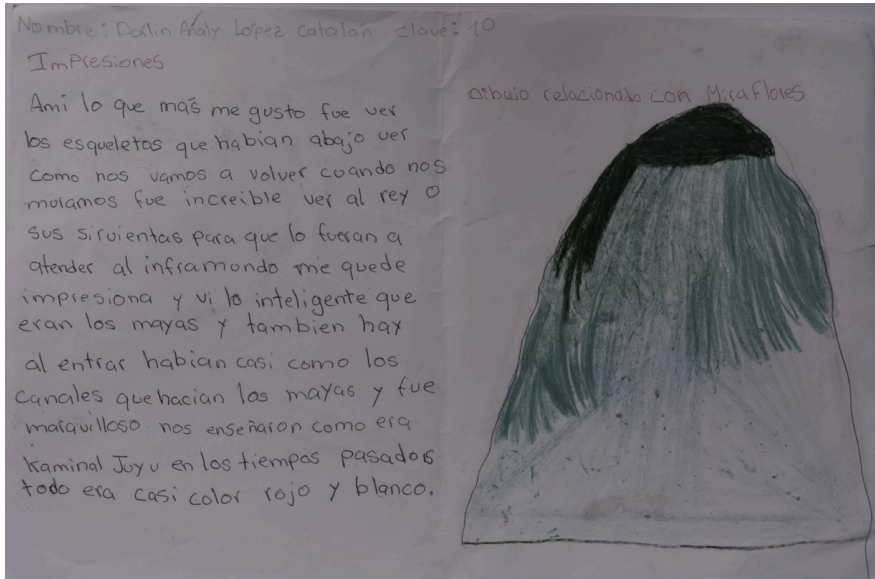 Nombre: Darlin Añaly López catalán clave: 10
Impresiones
Ami lo que más me gusto fue ver
los esqueletos que habian abajo ver
como nos vamos a volver cuando nos
muramos fue increible ver al rey o
sus sirvientas para que lo fueran a
atender al inframondo me quede
impresiona y vi lo inteligente que
eran los mayas y tambien hay
al entrar habian casi como los
canales que hacian los mayas y fue
marauilloso nos enseñaron como era
Kaminal Juyu en los tiempos pasados
todo era casi color rojo y blanco.
Dibujo relacionado con Miraflores